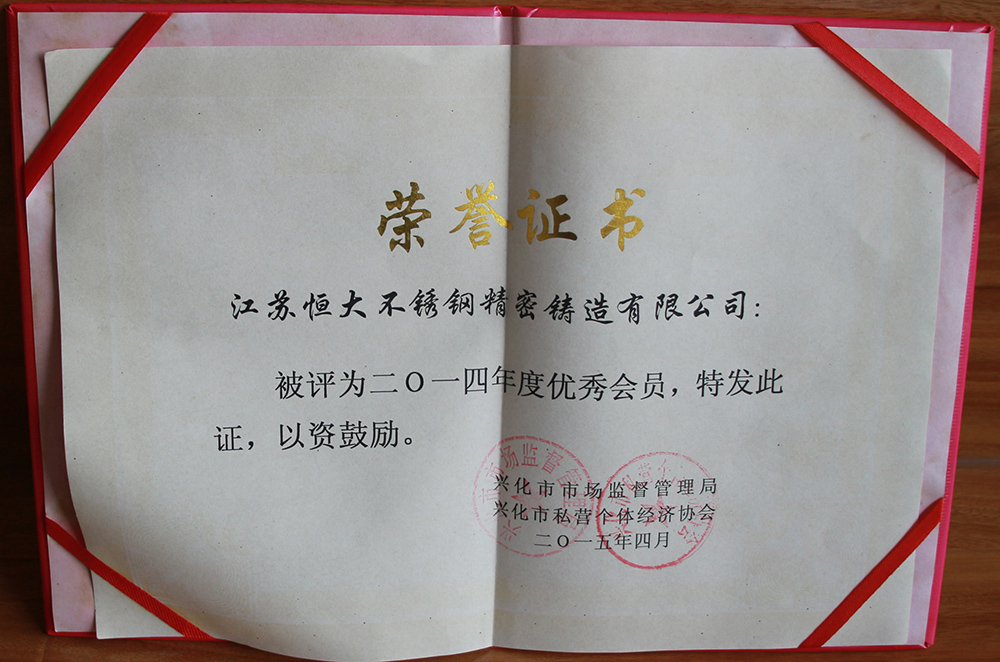 荣誉证书
江苏恒大不锈钢精密铸造有限公司：
被评为二〇一四年度优秀会员，特发此
证，以资鼓励。
兴化市市场监督管理局
兴化市私营个体经济协会
二〇一五年四月
兴化市市场监督管理局